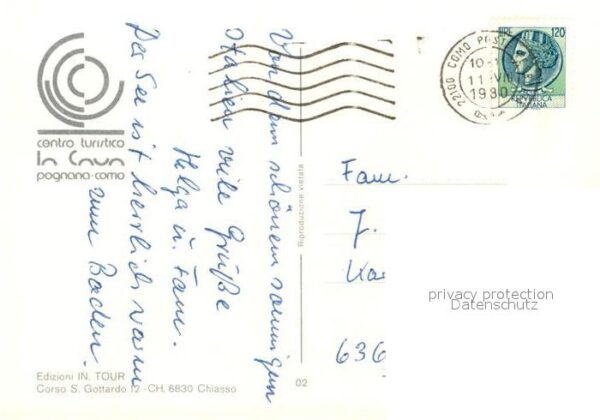 LIRE 120
REPUBBLICA
ITALIANA
22100 COMO POST
10
11 VII
1980
centro turistico
la cava
pognana-como
Von dem schönem sonnigen
Italien viele Grüße
Helga u. Fam.
Der See ist herrlich warm
zum Baden.
Riproduzione vietata
Fam.
J.
Ka
636
privacy protection
Datenschutz
Edizioni IN. TOUR
Corso S. Gottardo 12 - CH. 6830 Chiasso
02